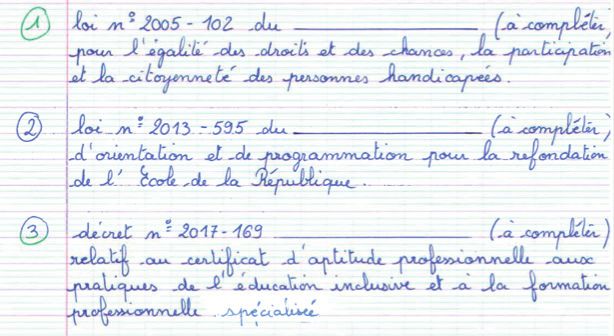 ① loi n° 2005-102 du __________ (à compléter,
pour l'égalité des droits et des chances, la participation
et la citoyenneté des personnes handicapées.
② loi n° 2013-595 du __________ (à compléter)
d'orientation et de programmation pour la refondation
de l'École de la République.
③ décret n° 2017-169 __________ (à compléter)
relatif au certificat d'aptitude professionnelle aux
pratiques de l'éducation inclusive et à la formation
professionnelle spécialisée